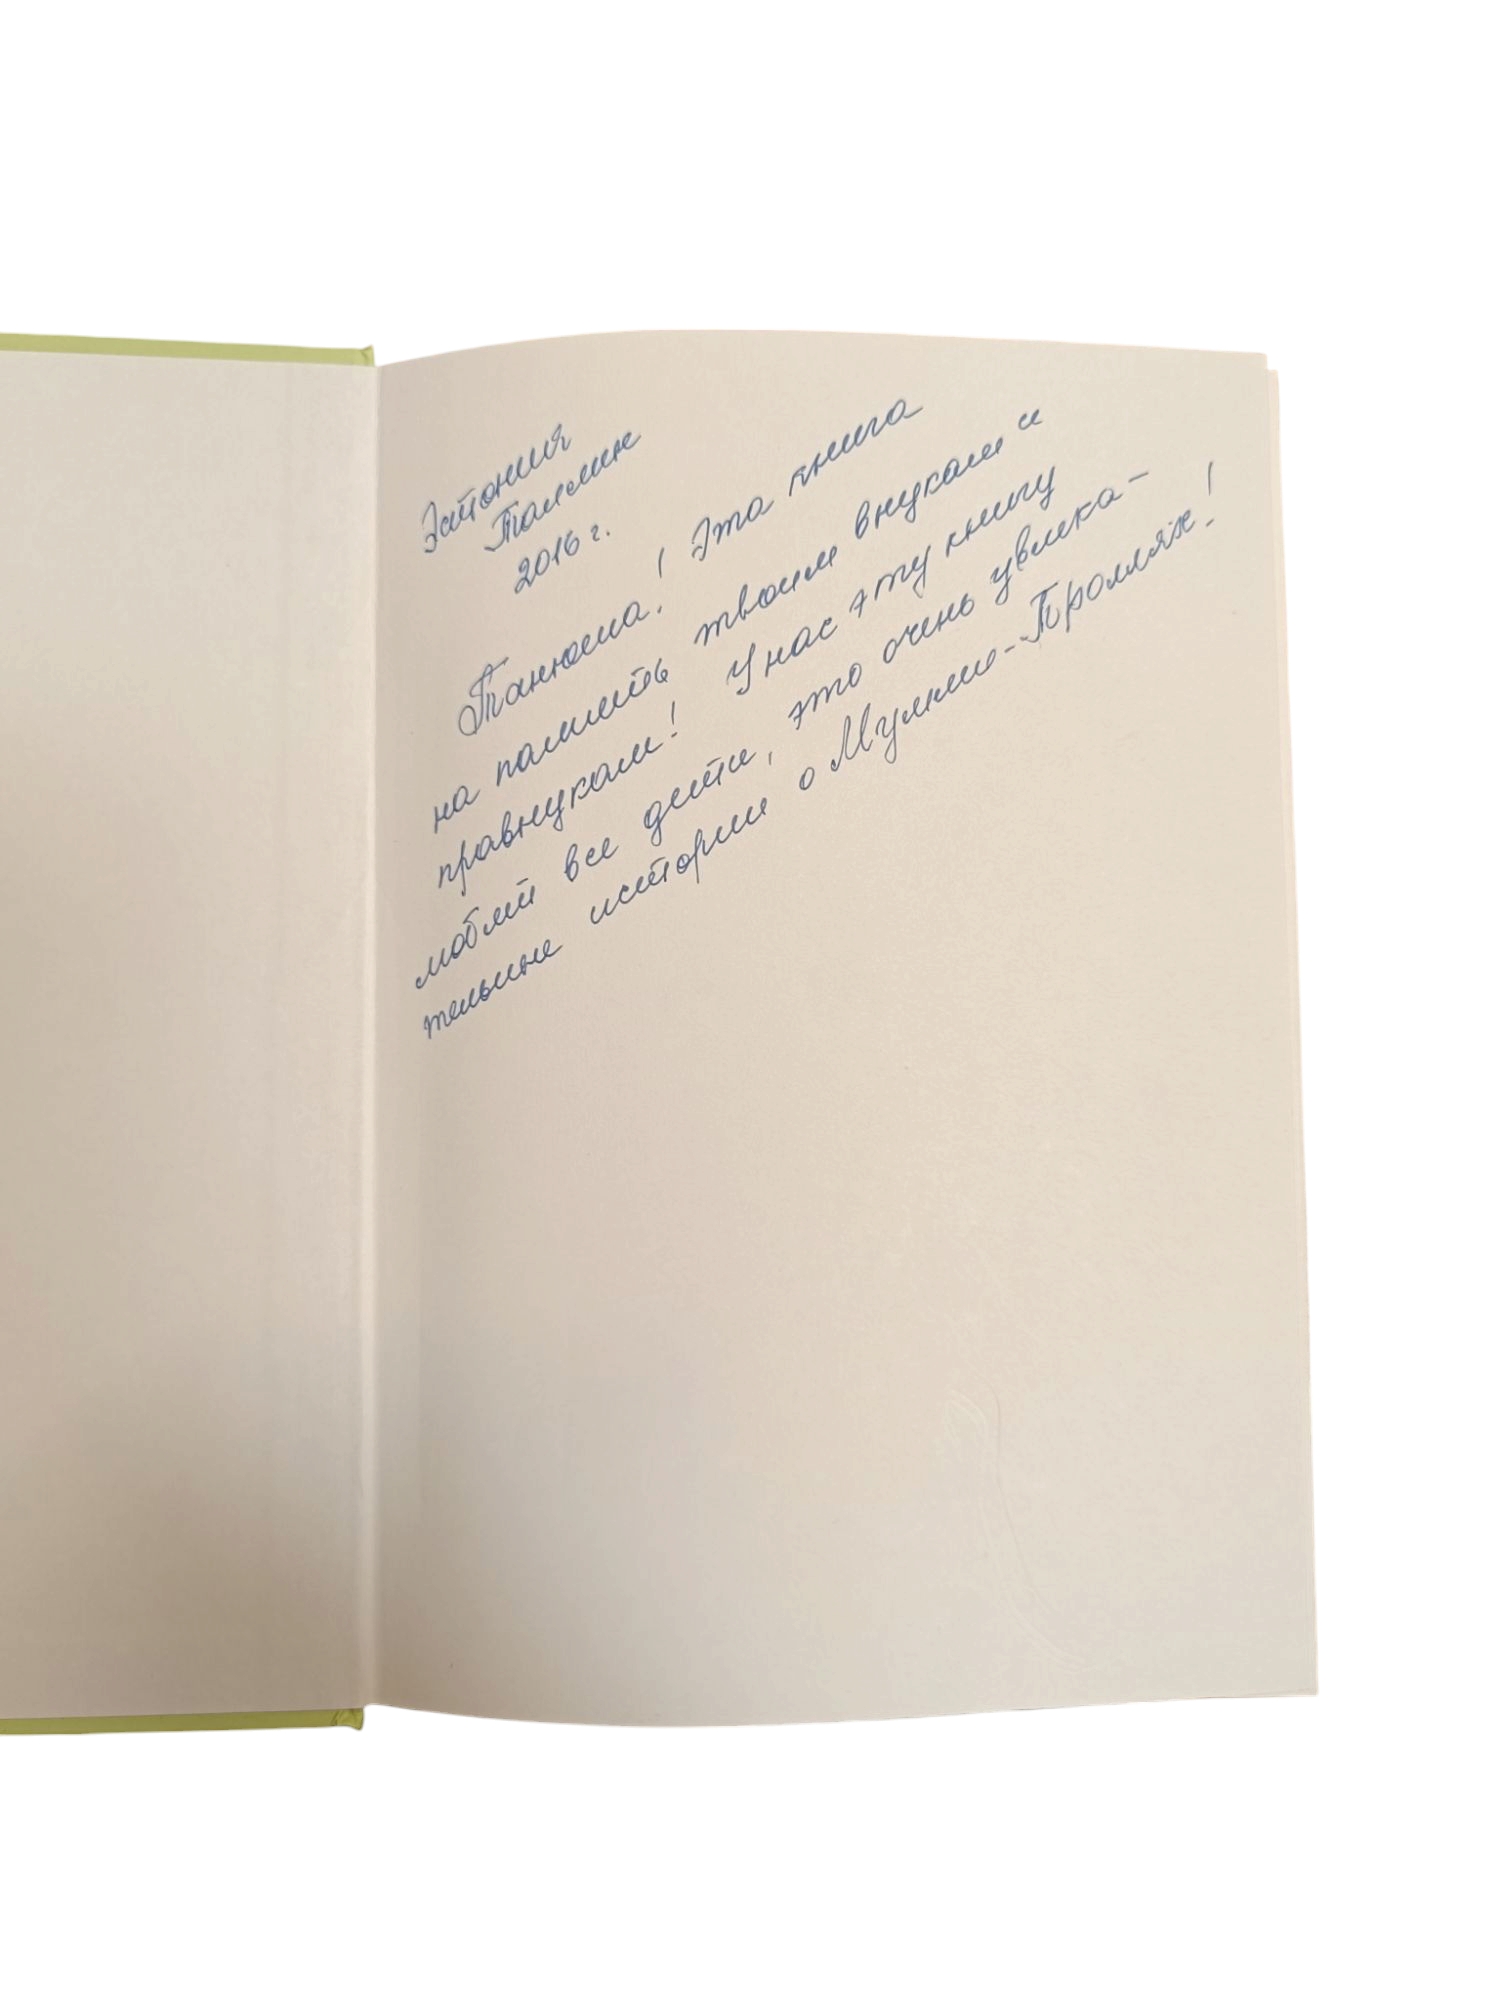 Эстония
Таллин
2016 г.
Танюша! Эта книга
на память твоим внукам и
правнукам! У нас эту книгу
любят все дети, это очень увлека-
тельные истории о Мумми-Троллях!